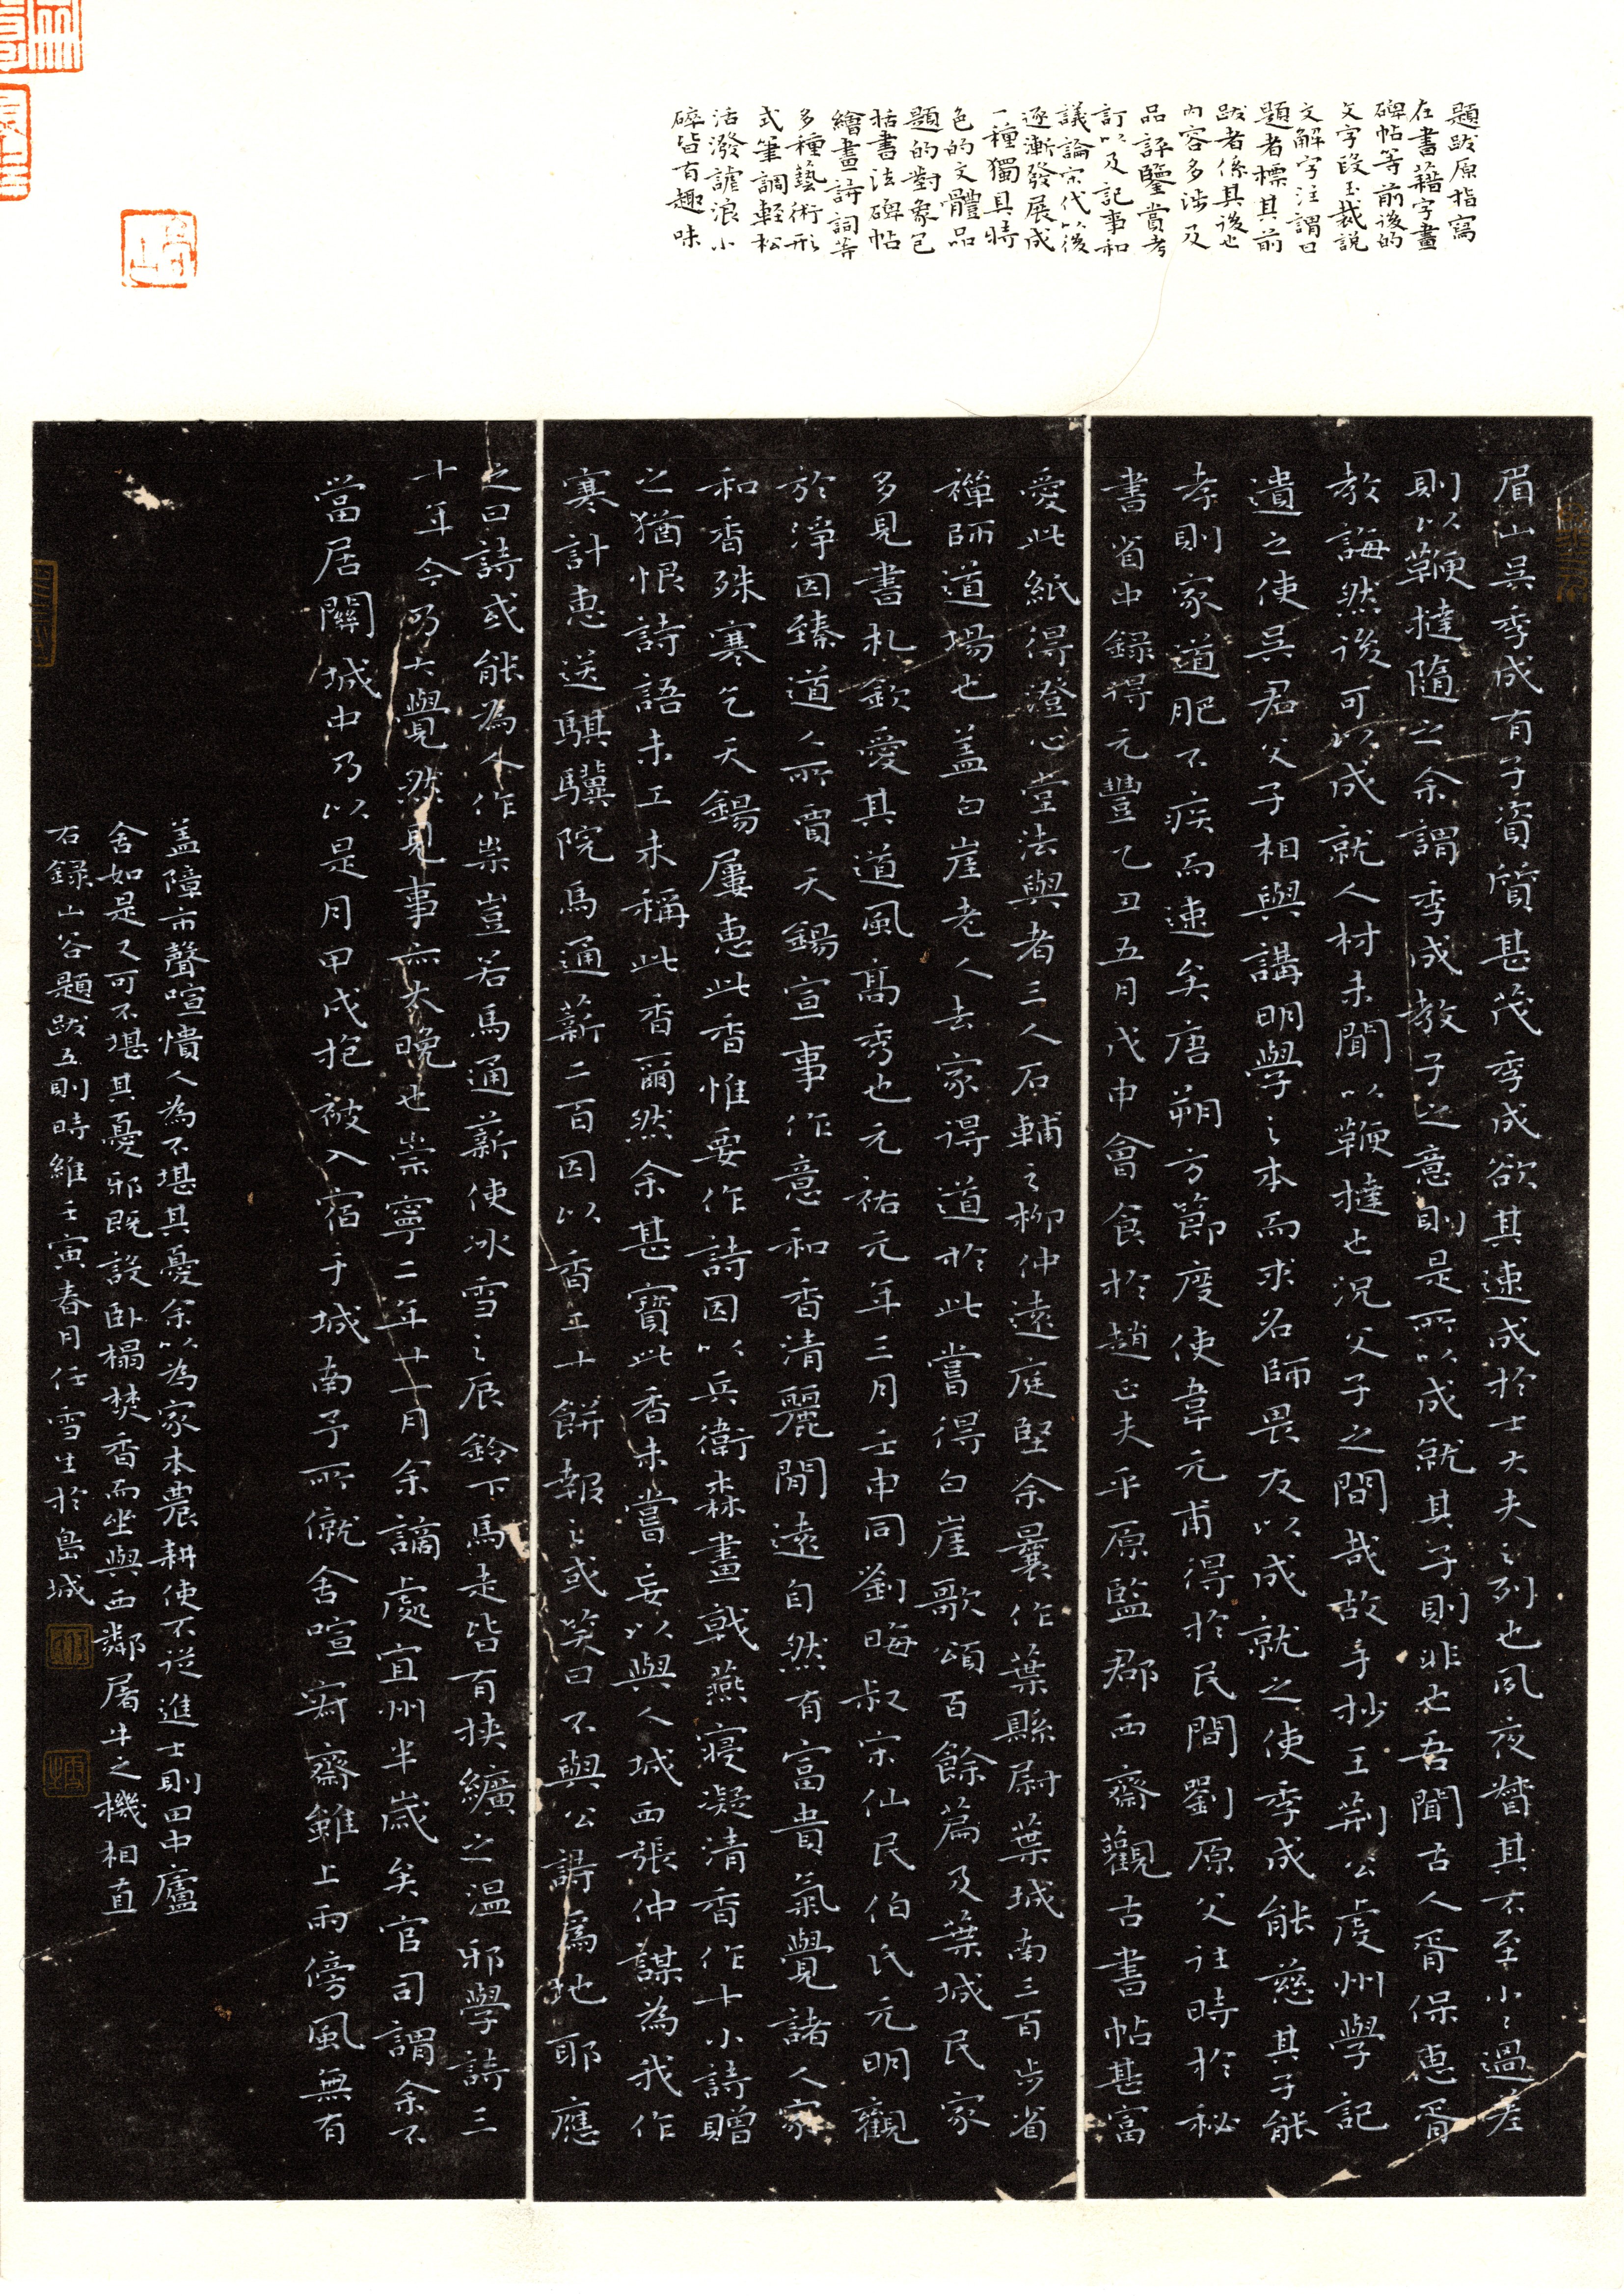 題跋原指寫
在書籍字畫
碑帖等前後的
文字段玉裁說
文解字注謂曰
題者標其前
跋者係其後也
內容多涉及
品評鑒賞考
訂以及記事和
議論宋代以後
逐漸發展成
一種獨具特
色的文體品
題的對象包
括書法碑帖
繪畫詩詞等
多種藝術形
式筆調輕松
活潑謔浪小
碎皆有趣味
眉山吳季成有子資質甚茂季成欲其速成於士大夫之列也夙夜督其不至小小過差
則以鞭撻隨之余謂季成教子之意則是所以成就其子則非也吾聞古人胥保惠胥
教誨然後可以成就人材未聞以鞭撻也況父子之間哉故手抄王荊公虔州學記
遺之使吳君父子相與講明學之本而求名師畏友以成就之使季成能慈其子能
孝則家道肥不疾而速矣唐朔方節度使韋元甫得於民間劉原父往時於秘
書省中錄得元豐乙丑五月戊申會食於趙正夫平原監郡西齋觀古書帖甚富
愛此紙得澄心堂法與者三人石輔之柳仲遠庭堅余曩作葉縣尉葉城南三百步省
禪師道場也盖白崖老人去家得道於此嘗得白崖歌頌百餘篇及葉城民家
多見書札欽愛其道風高秀也元祐元年三月壬申同劉晦叔宋仙民伯氏元明觀
於淨因臻道人所賈天錫宣事作意和香清麗閒遠自然有富貴氣覺諸人家
和香殊寒乞天錫屢惠此香惟要作詩因以兵衛森畫戟燕寢凝清香作十小詩贈
之猶恨詩語未工未稱此香爾然余甚寶此香未嘗妄以與人城西張仲謀為我作
寒計惠送騏驥院馬通薪二百因以香二十餅報之或笑曰不與公詩爲地耶應
之曰詩或能為人作祟豈若馬通薪使冰雪之辰鈴下馬走皆有挾纊之温邪學詩三
十年今乃大覺然見事亦太晚也崇寧二年十一月余謫處宜州半歲矣官司謂余不
當居關城中乃以是月甲戌抱被入宿于城南予所僦舍喧寂齋雖上雨傍風無有
盖障市聲喧憒人為不堪其憂余以為家本農耕使不從進士則田中廬
舍如是又可不堪其憂邪既設卧榻焚香而坐與西鄰屠牛之機相直
右錄山谷題跋五則時維壬寅春月任雪生於島城